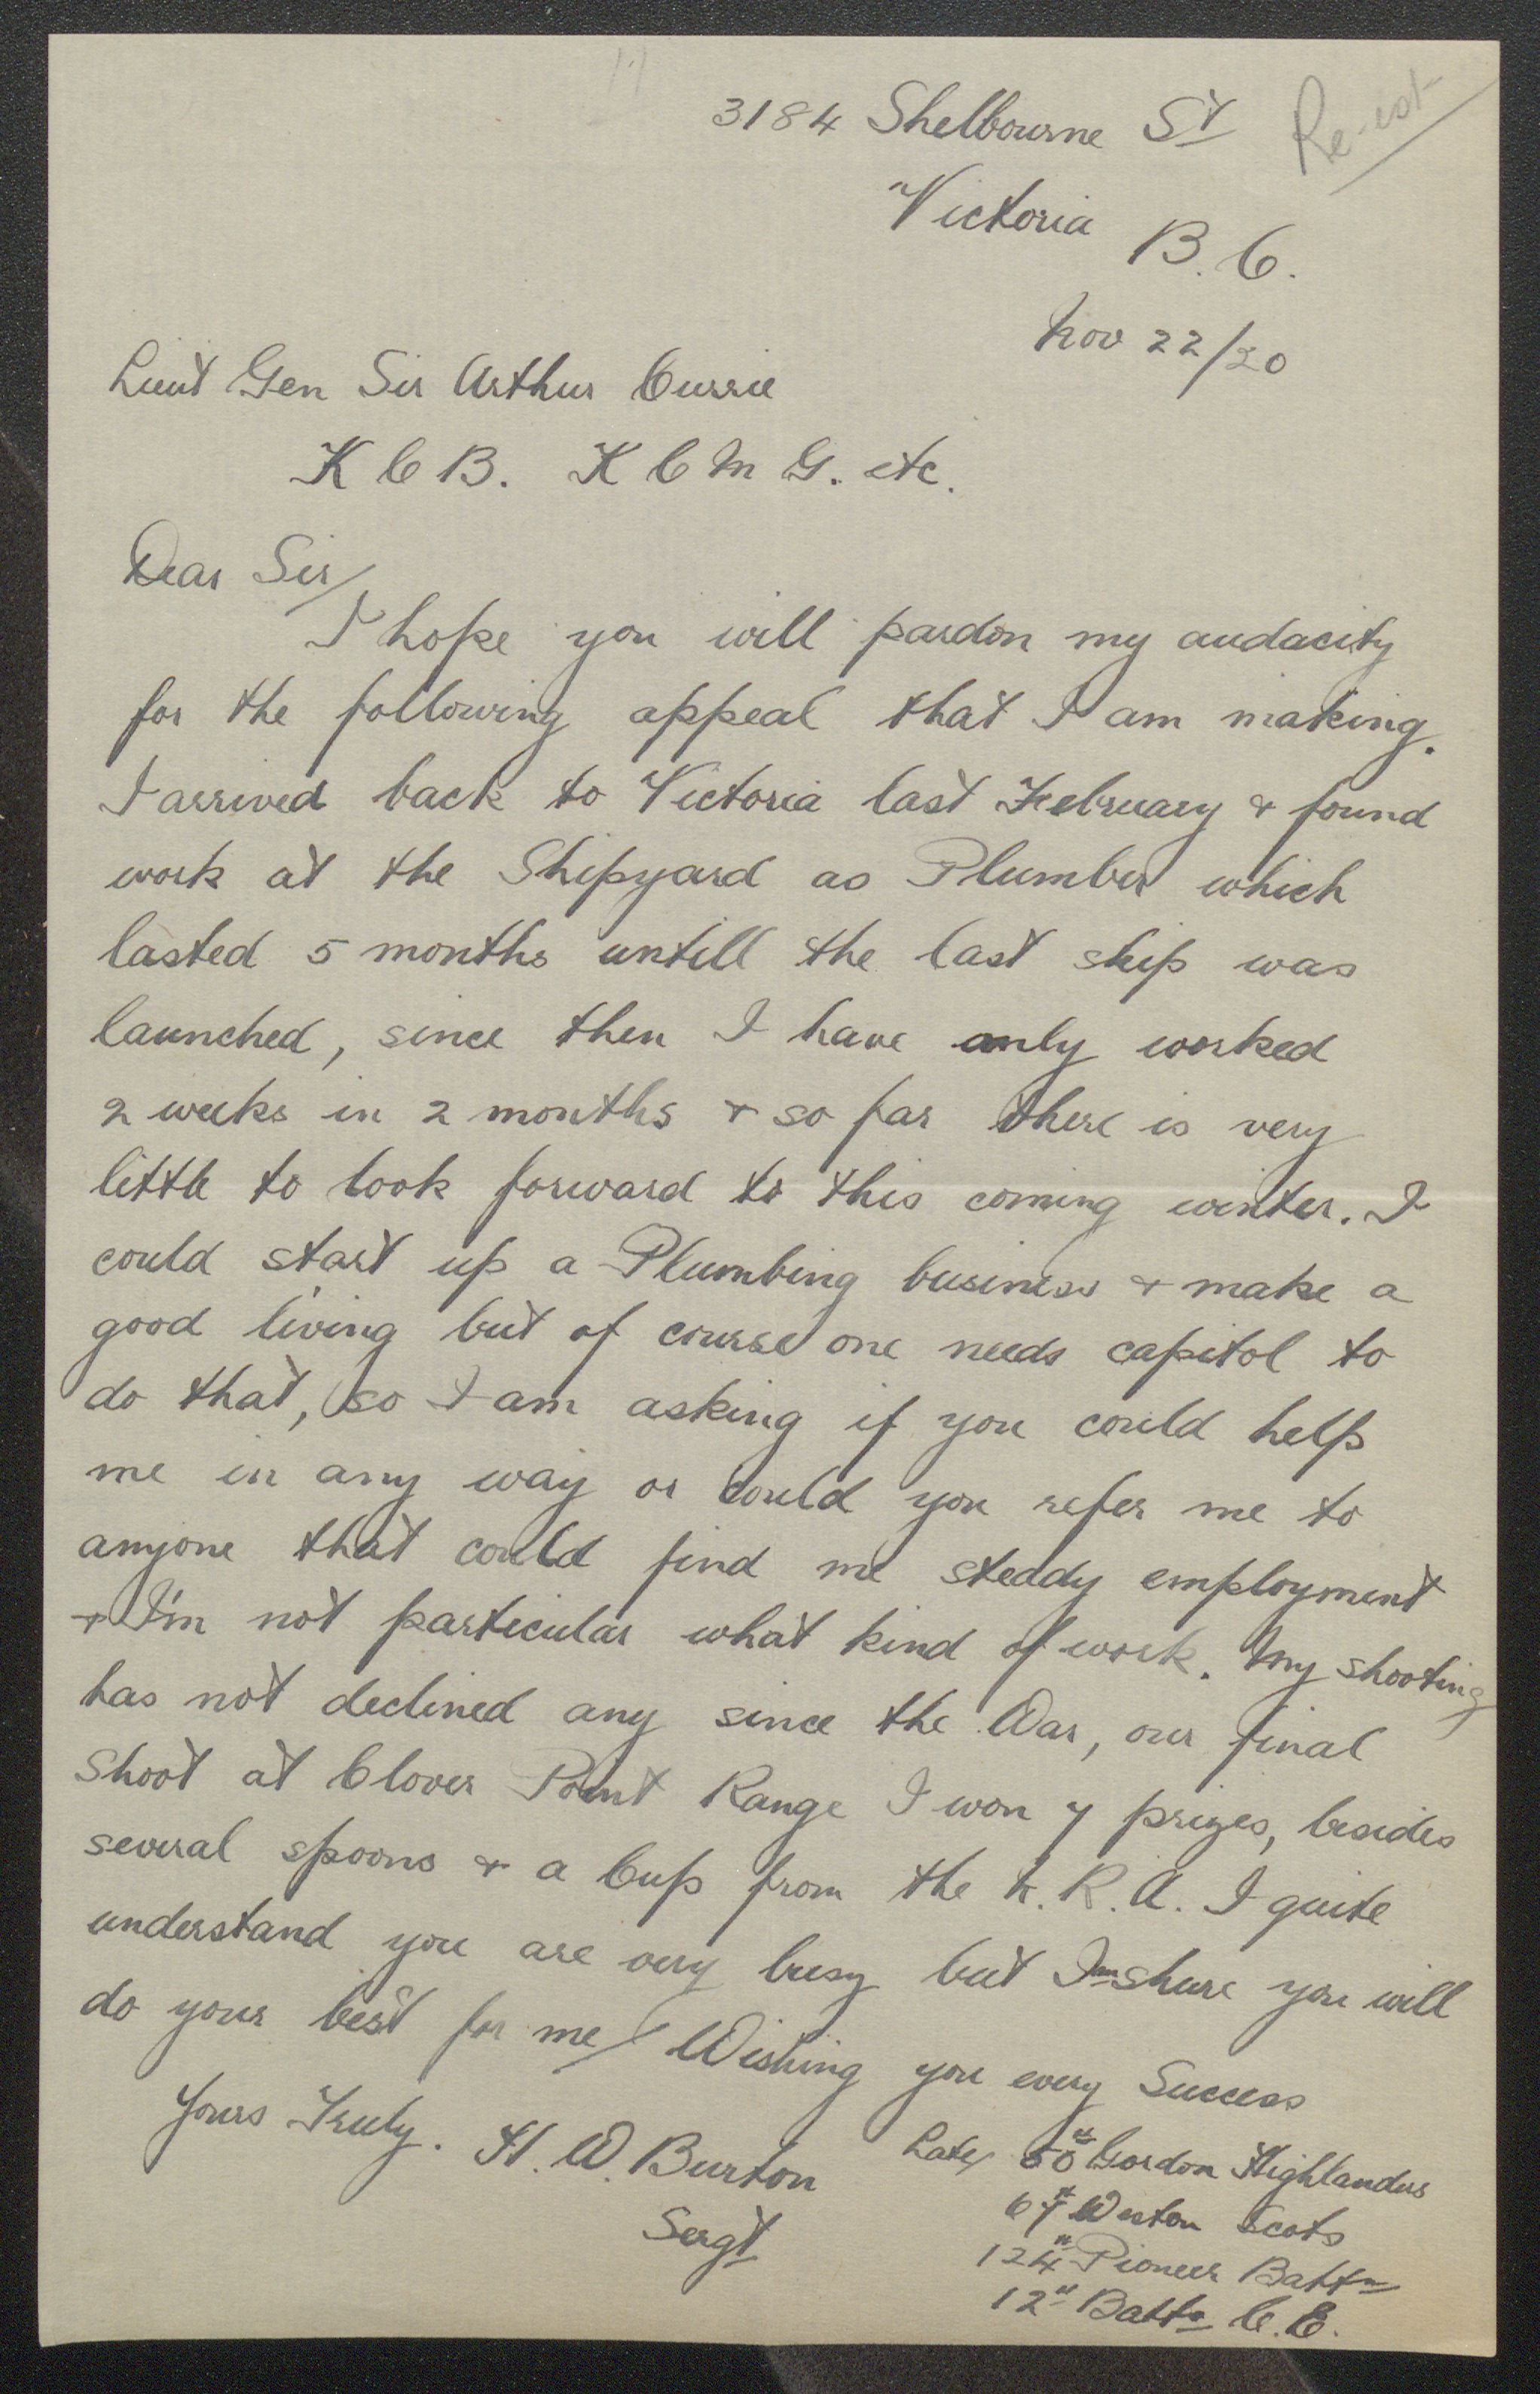 3184 Shelbourne St
Re-est
Victoria B.C.
Nov 22/20
Lieut Gen Sir Arthur Currie
K C B. K C M G. etc.
Dear Sir/
I hope you will pardon my audacity
for the following appeal that I am making.
I arrived back to Victoria last February & found
work at the Shipyard as Plumber which
lasted 5 months untill the last ship was
launched, since then I have only worked
2 weeks in 2 months & so far there is very
little to look forward to this coming winter. I
could start up a Plumbing business & make a
good living but of course one needs capitol to
do that, so I am asking if you could help
me in any way or could you refer me to
anyone that could find me steddy employment
& I'm not particular what kind of work. My shooting
has not declined any since the War, our final
shoot at Clover Point Range I won 7 prizes, besides
several spoons & a Cup from the N.R.A. I quite
understand you are very busy but I'm shure you will
do your best for me/ Wishing you every Success
Yours Truly. H. W. Burton
Sergt
Late 50th Gordon Highlanders
67th Western Scots
124th Pioneer Battn
12th Battn C.E.